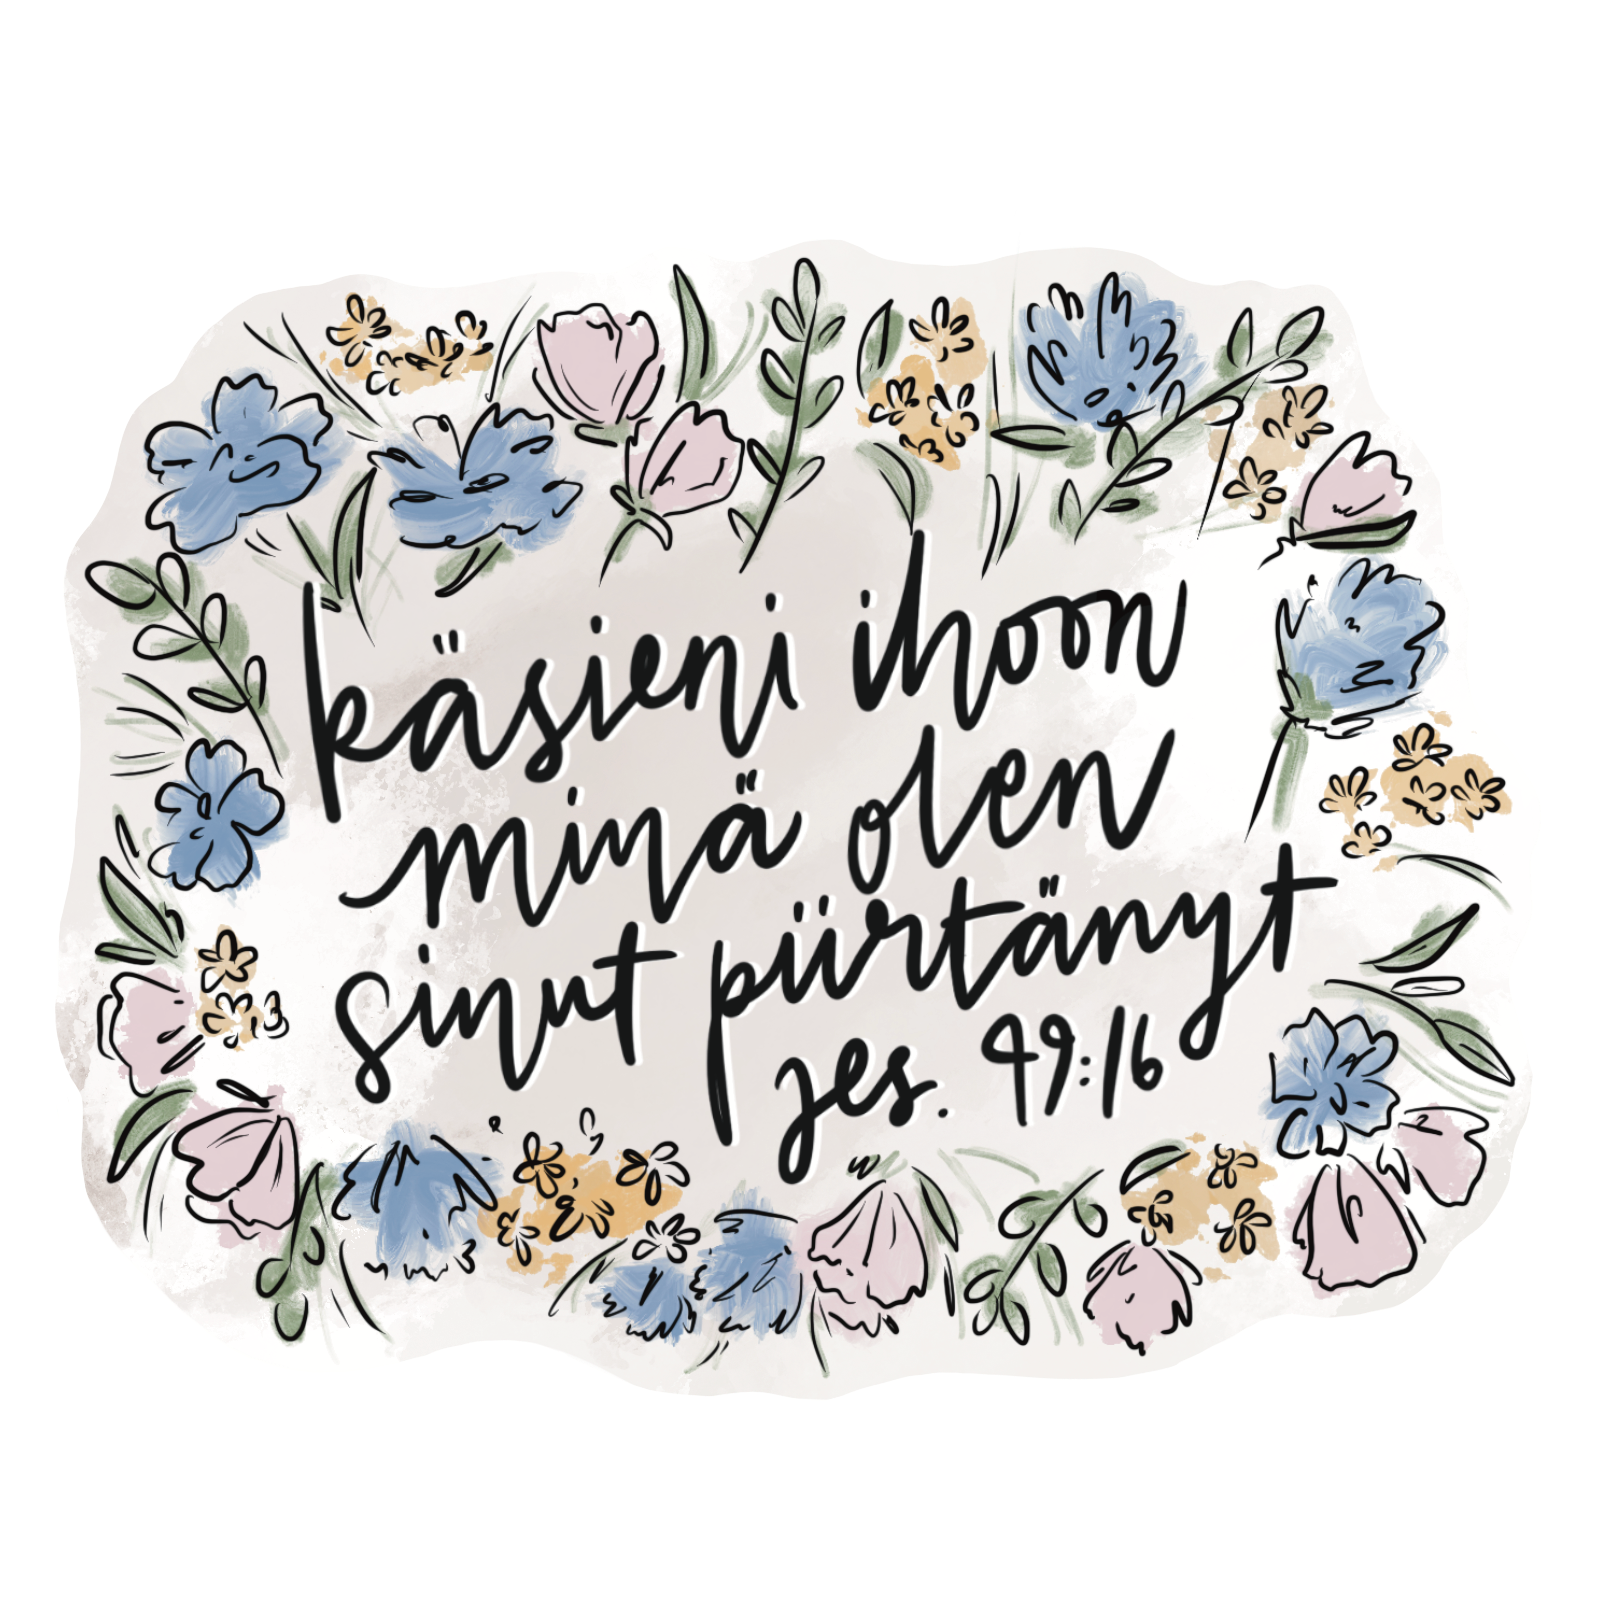 käsieni ihoon
minä olen
sinut piirtänyt
jes. 49:16